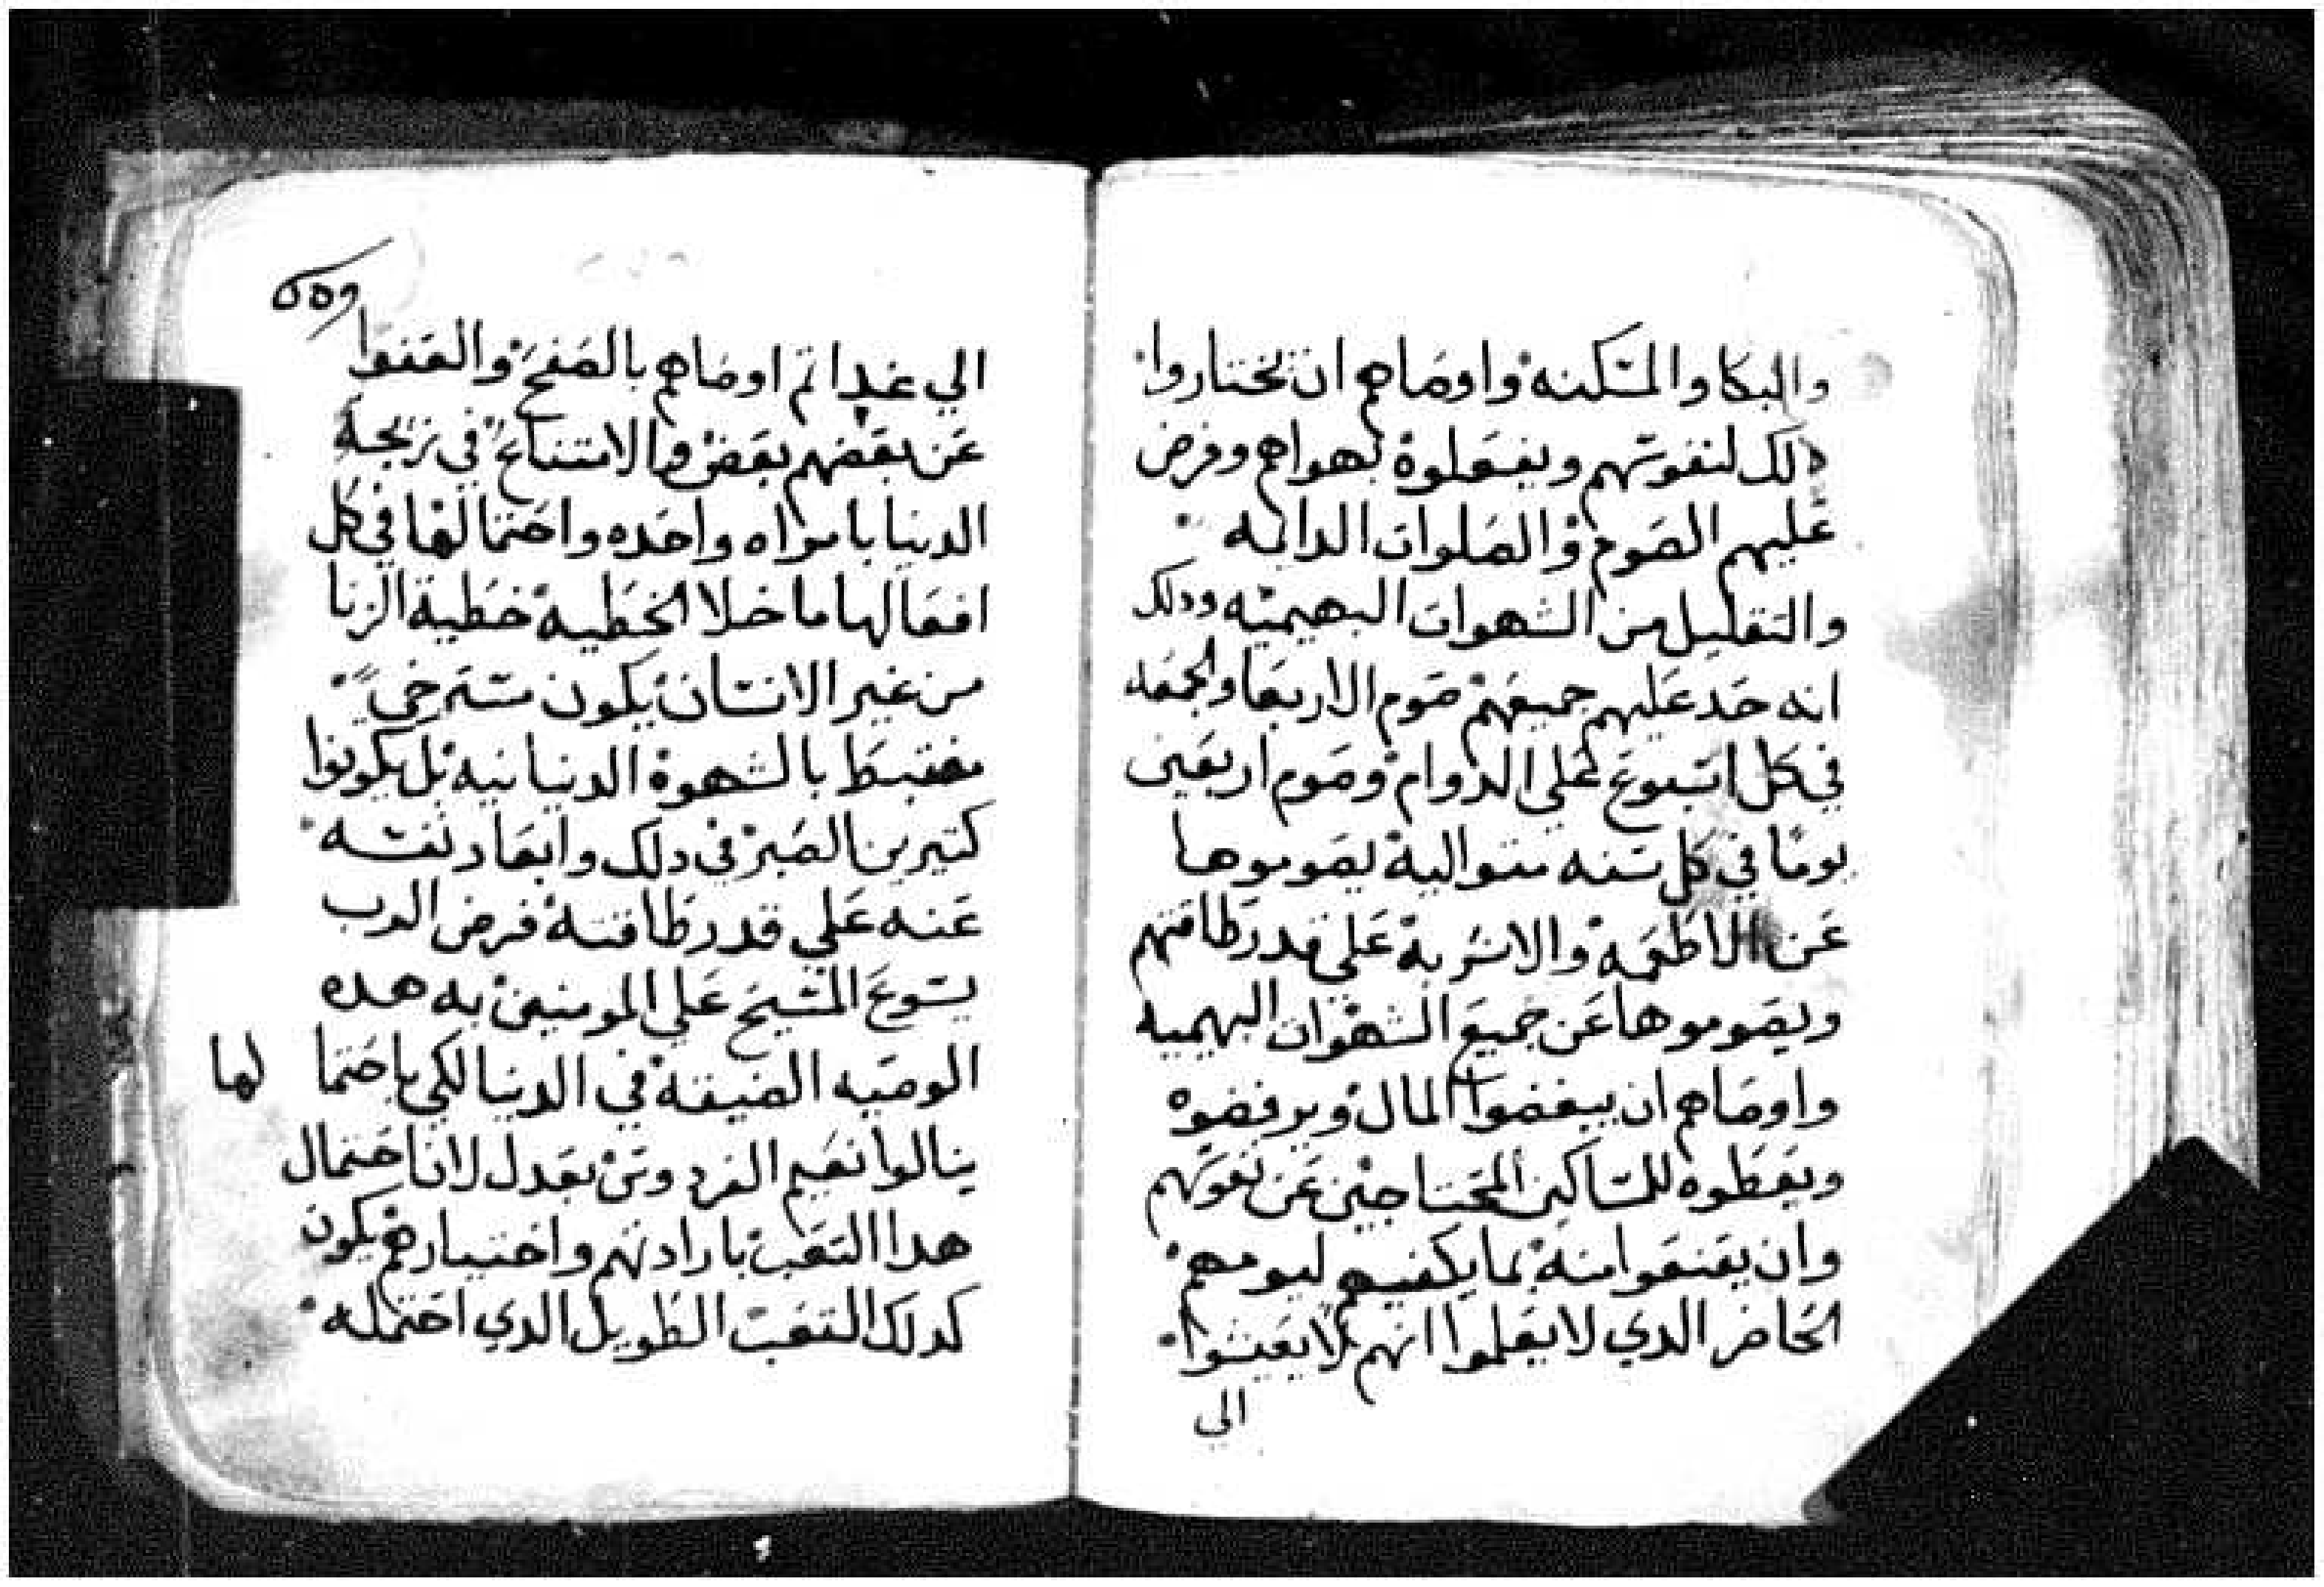 والبكا والمسكنه واوصاهم ان يختاروا
دلك لنفوسهم ويفعلوة بهواهم وفرض
عليهم الصوم والصلوات الدايمه
والتقليل من الشهوات البهيميه ودلك
انه حد عليهم جميعهم صوم الاربعا والجمعه
في كل اسبوع علي الدوام وصوم اربعين
يومًا في كل سنه متوالية يصوموها
عن الاطعمه والاشربة علي قدر طاقتهم
ويصوموها عن جميع الشهوات البهيميه
واوصاهم ان يبغضوا المال ويرفضوه
ويعطوه للمساكين المحتاجين عن نفوسهم
وان يقنعوا منه بما يكفيهم ليومهم
الحاضر الدي لا يعلموا انهم لا يعيشوا
الي
الي غدا تم اوصاهم بالصفح والعفوا
عن بعضهم بعض والامتناع في زيجة
الدنيا بامراه واحده واحتمالها في كل
افعالها ما خلا الخطية خطية الزنا
من غير الانسان يكون مسترخي
مغتبط بالشهوة الدنيانيه بل يكونوا
كتيرين الصبر في دلك وابعاد نفسه
عنه علي قدر طاقته فرض الرب
يسوع المسيح علي المومنين به هده
الوصيه الضيقه في الدنيا لكي باحتما لها
ينالوا نعيم الفردوس بعدل لان احتمال
هدا التعب بارادتهم واختيارهم يكون
كدلك التعب الطويل الدي احتمله